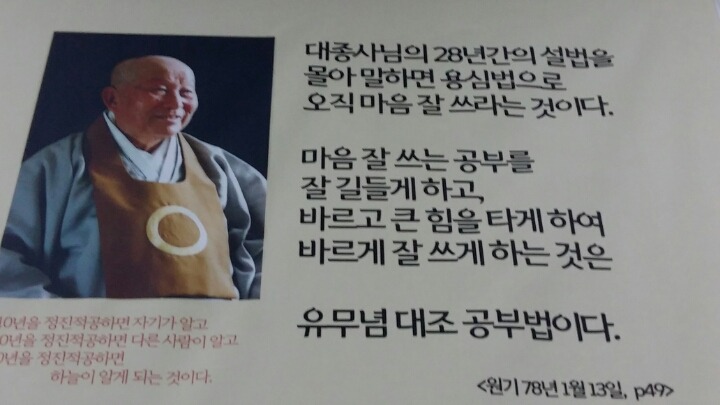 대종사님의 28년간의 설법을
몰아 말하면 용심법으로
오직 마음 잘 쓰라는 것이다.
마음 잘 쓰는 공부를
잘 길들게 하고,
바르고 큰 힘을 타게 하여
바르게 잘 쓰게 하는 것은
유무념 대조 공부법이다.
<원기 78년 1월 13일, p49>
정진적공하면 자기가 알고
정진적공하면 다른 사람이 알고
정진적공하면
하늘이 알게 되는 것이다.